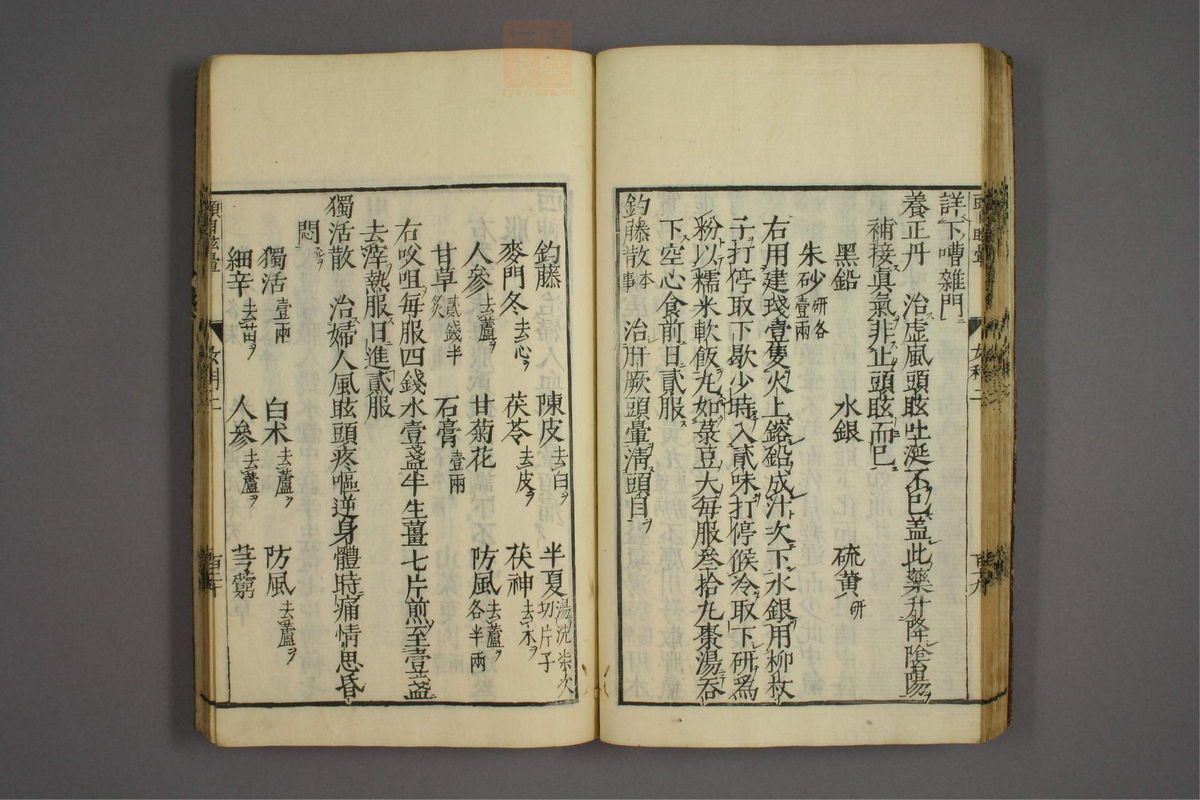 詳下嘈雜門
養正丹　治虚風頭眩吐涎不已盖此藥升降陰陽
補接真氣非止頭眩而已
黑鉛　水銀　硫黄研
朱砂研各壹兩
右用建琖壹隻火上鎔鉛成汁次下水銀用柳杖
子打停取下歇少時入貳味打停候冷取下研為
粉以糯米軟飯丸如菉豆大毎服叁拾丸棗湯吞
下空心食前日貳服
鈎藤散本事　治肝厥頭暈清頭目
鈎藤　陳皮去白　半夏湯洗柒次切片子
麥門冬去心　茯苓去皮　茯神去木
人參去蘆　甘菊花　防風去蘆各半兩
甘草貳錢半炙　石膏壹兩
右㕮咀毎服四錢水壹盞半生薑七片煎至壹盞
去滓熱服日進貳服
獨活散　治婦人風眩頭疼嘔逆身體時痛情思昏
悶
獨活壹兩　白术去蘆　防風去蘆
細辛去苗　人參去蘆　芎藭